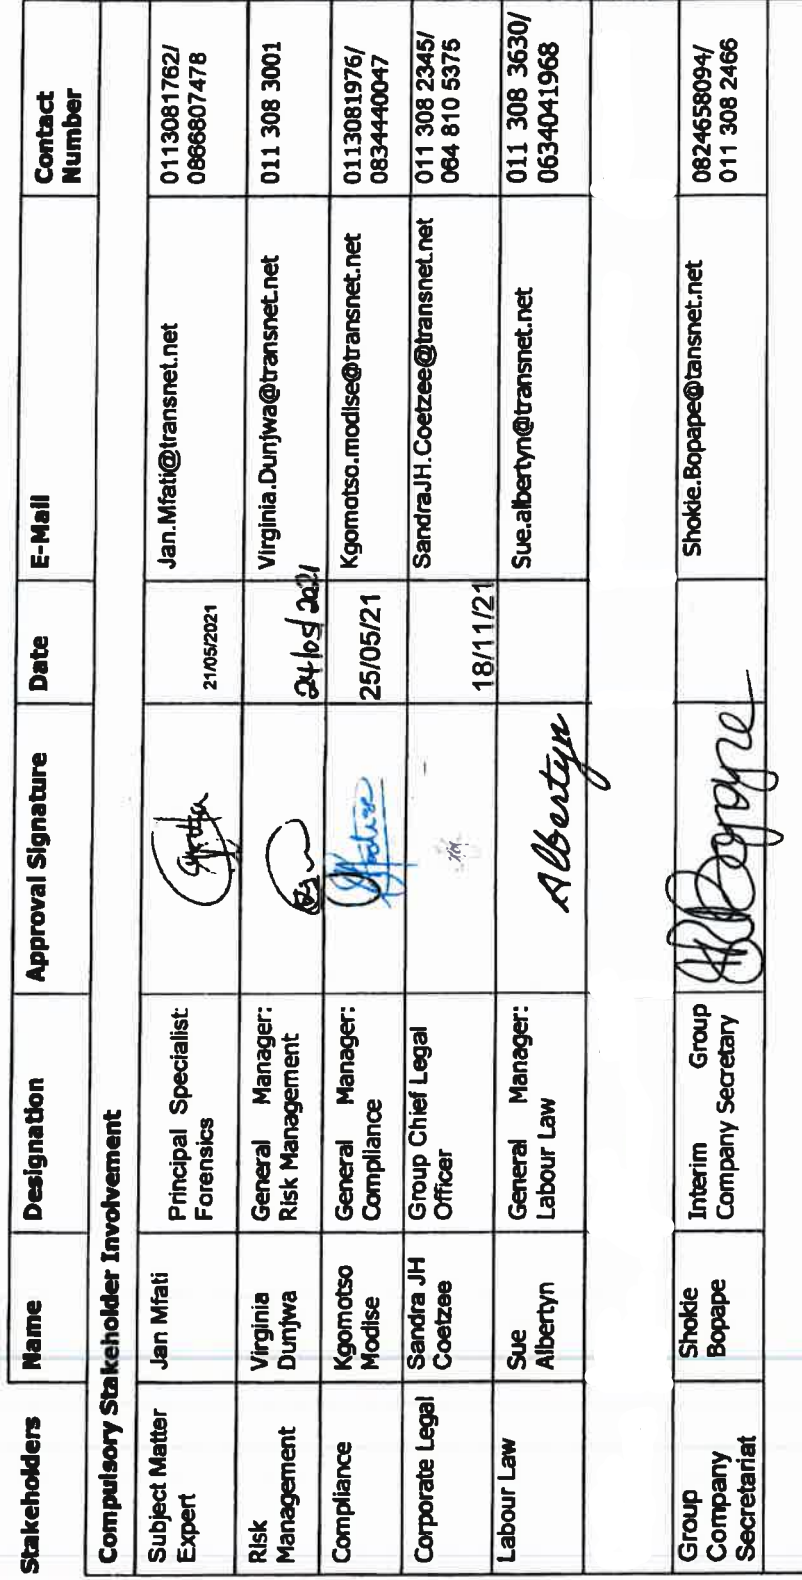 Stakeholders Name Designation Approval Signature Date E-Mail Contact Number
Compulsory Stakeholder Involvement
Subject Matter Expert Jan Mfati Principal Specialist: Forensics 21/05/2021 Jan.Mfati@transnet.net 0113081762/ 0866807478
Risk Management Virginia Dunjwa General Manager: Risk Management 24/05/2021 Virginia.Dunjwa@transnet.net 011 308 3001
Compliance Kgomotso Modise General Manager: Compliance Modise 25/05/21 Kgomotso.modise@transnet.net 0113081976/ 0834440047
Corporate Legal Sandra JH Coetzee Group Chief Legal Officer 18/11/21 SandraJH.Coetzee@transnet.net 011 308 2345/ 064 810 5375
Labour Law Sue Albertyn General Manager: Labour Law Albertyn Sue.albertyn@transnet.net 011 308 3630/ 0634041968
Group Company Secretariat Shokie Bopape Interim Group Company Secretary Bopape Shokie.Bopape@tansnet.net 0824658094/ 011 308 2466